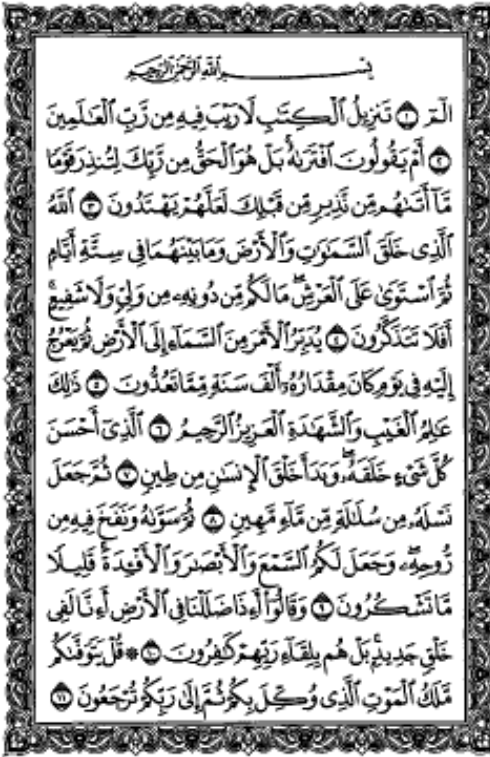 بِسْمِ ٱللَّهِ ٱلرَّحْمَٰنِ ٱلرَّحِيمِ
الٓمٓ ١ تَنزِيلُ ٱلْكِتَٰبِ لَا رَيْبَ فِيهِ مِن رَّبِّ ٱلْعَٰلَمِينَ
٢ أَمْ يَقُولُونَ ٱفْتَرَىٰهُ ۚ بَلْ هُوَ ٱلْحَقُّ مِن رَّبِّكَ لِتُنذِرَ قَوْمًا
مَّآ أَتَىٰهُم مِّن نَّذِيرٍ مِّن قَبْلِكَ لَعَلَّهُمْ يَهْتَدُونَ ٣ ٱللَّهُ
ٱلَّذِى خَلَقَ ٱلسَّمَٰوَٰتِ وَٱلْأَرْضَ وَمَا بَيْنَهُمَا فِى سِتَّةِ أَيَّامٍ
ثُمَّ ٱسْتَوَىٰ عَلَى ٱلْعَرْشِ ۖ مَا لَكُم مِّن دُونِهِۦ مِن وَلِىٍّ وَلَا شَفِيعٍ ۚ
أَفَلَا تَتَذَكَّرُونَ ٤ يُدَبِّرُ ٱلْأَمْرَ مِنَ ٱلسَّمَآءِ إِلَى ٱلْأَرْضِ ثُمَّ يَعْرُجُ
إِلَيْهِ فِى يَوْمٍ كَانَ مِقْدَارُهُۥٓ أَلْفَ سَنَةٍ مِّمَّا تَعُدُّونَ ٥ ذَٰلِكَ
عَٰلِمُ ٱلْغَيْبِ وَٱلشَّهَٰدَةِ ٱلْعَزِيزُ ٱلرَّحِيمُ ٦ ٱلَّذِىٓ أَحْسَنَ
كُلَّ شَىْءٍ خَلَقَهُۥ ۖ وَبَدَأَ خَلْقَ ٱلْإِنسَٰنِ مِن طِينٍ ٧ ثُمَّ جَعَلَ
نَسْلَهُۥ مِن سُلَٰلَةٍ مِّن مَّآءٍ مَّهِينٍ ٨ ثُمَّ سَوَّىٰهُ وَنَفَخَ فِيهِ مِن
رُّوحِهِۦ ۖ وَجَعَلَ لَكُمُ ٱلسَّمْعَ وَٱلْأَبْصَٰرَ وَٱلْأَفْـِٔدَةَ ۚ قَلِيلًا
مَّا تَشْكُرُونَ ٩ وَقَالُوٓا۟ أَءِذَا ضَلَلْنَا فِى ٱلْأَرْضِ أَءِنَّا لَفِى
خَلْقٍ جَدِيدٍۭ ۚ بَلْ هُم بِلِقَآءِ رَبِّهِمْ كَٰفِرُونَ ١٠ ۞ قُلْ يَتَوَفَّىٰكُم
مَّلَكُ ٱلْمَوْتِ ٱلَّذِى وُكِّلَ بِكُمْ ثُمَّ إِلَىٰ رَبِّكُمْ تُرْجَعُونَ ١١